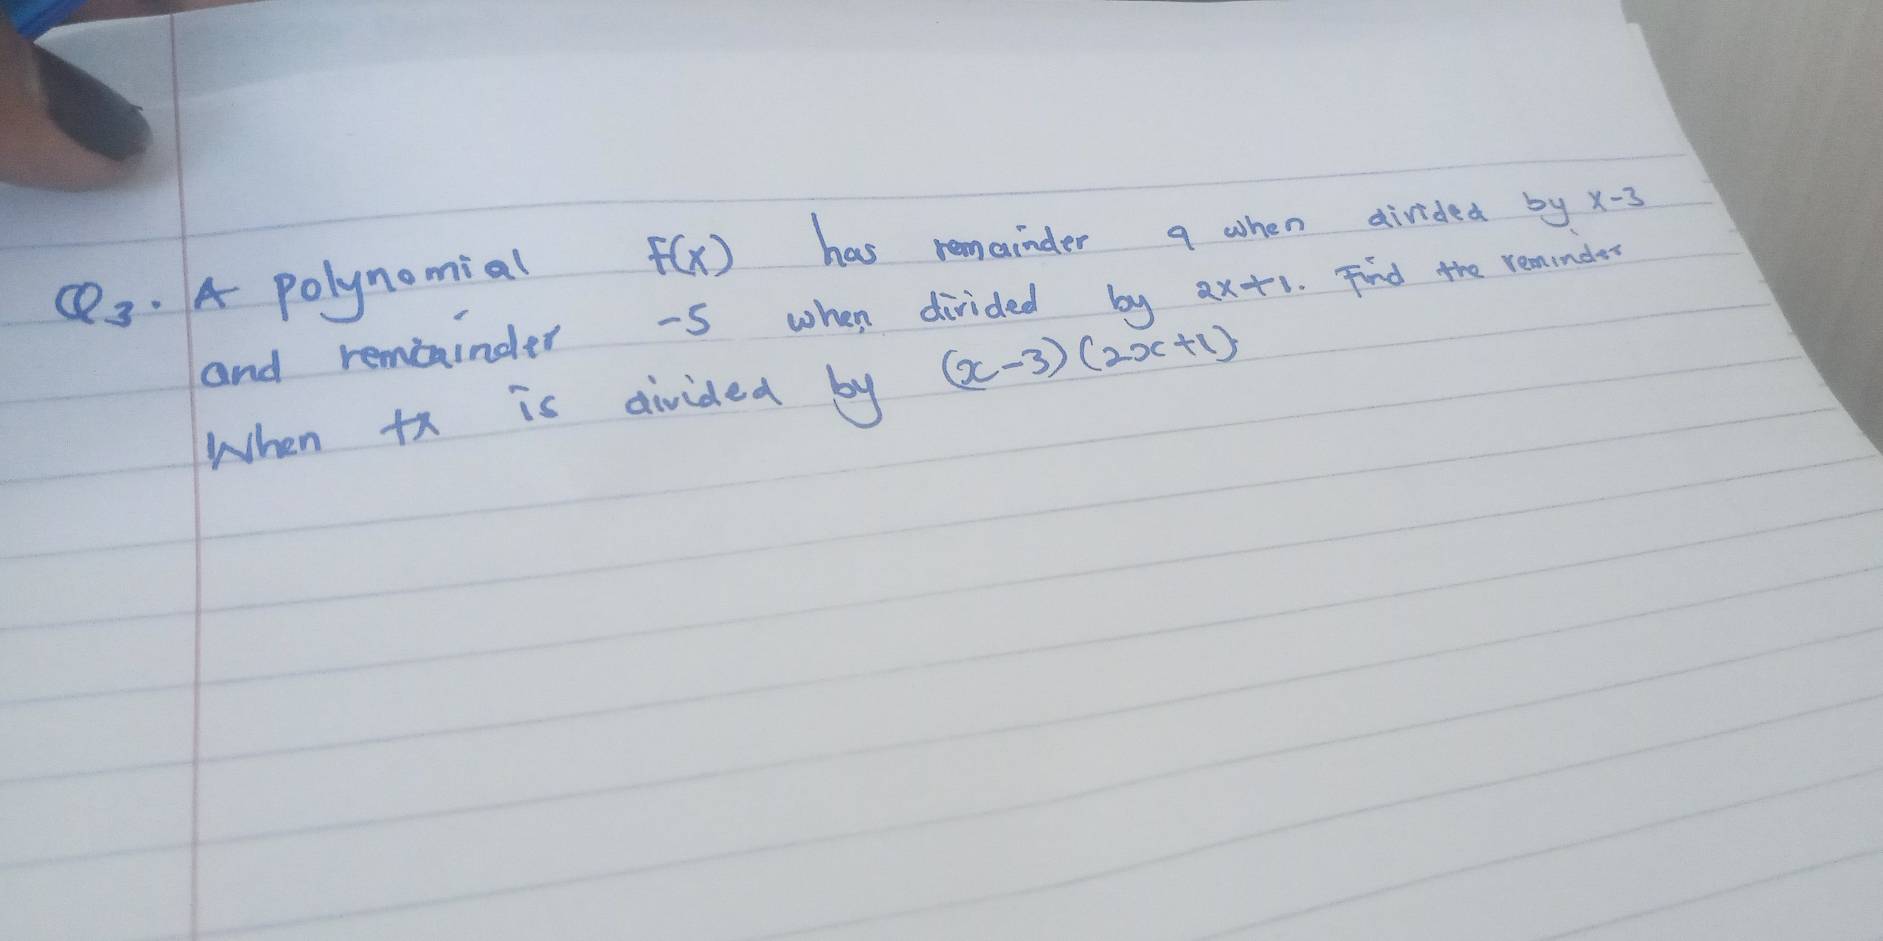 Q3. A polynomial F(x) has remainder 9 when divided by x-3
and remainder -5 when divided by 2x+1. Find the reminder
When fx is divided by (x-3)(2x+1)